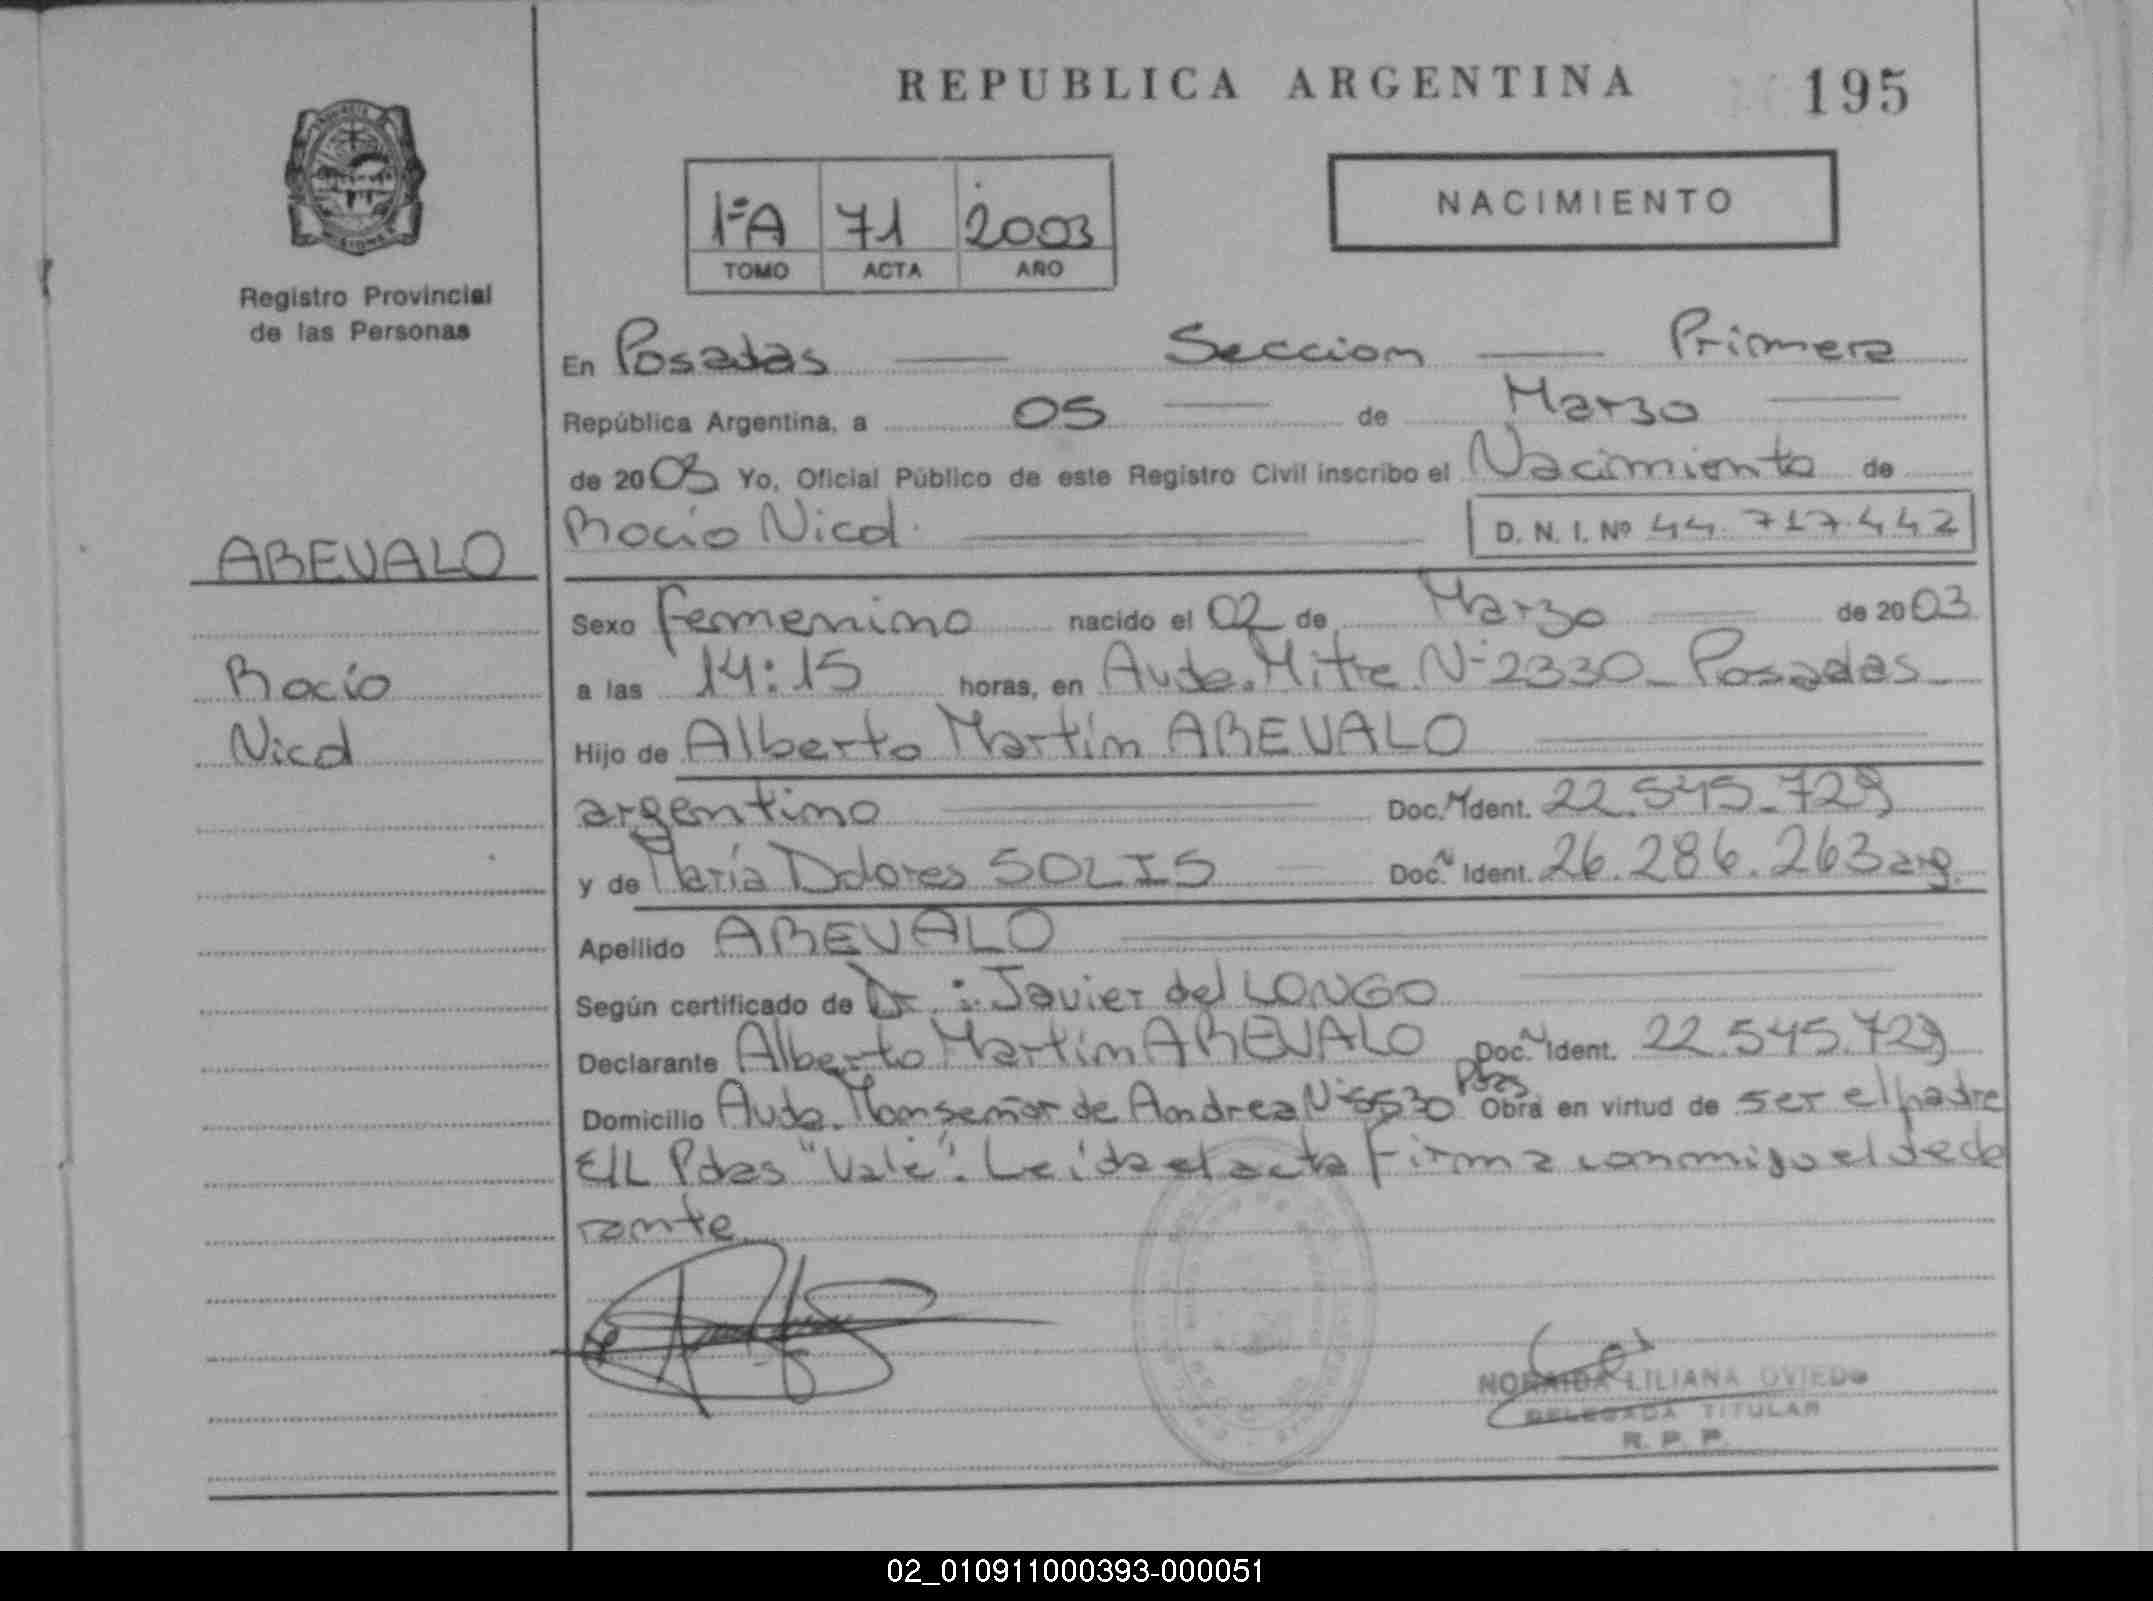 REPUBLICA ARGENTINA 195
1ªA 71 2003
TOMO ACTA AÑO
NACIMIENTO
Registro Provincial
de las Personas
En Posadas Seccion Primera
República Argentina, a 05 de Marzo
de 2003 Yo, Oficial Público de este Registro Civil inscribo el Nacimiento de
Rocío Nicol D. N. I. Nº 44.717.442
AREVALO
Rocío
Nicol
Sexo femenino nacido el 02 de Marzo de 2003
a las 14:15 horas, en Avda. Mitre Nº 2330 - Posadas -
Hijo de Alberto Martín AREVALO
argentino Doc. N Ident. 22.545.729
y de María Dolores SOLIS Doc. N Ident. 26.286.263 arg.
Apellido AREVALO
Según certificado de Dr.: Javier del LONGO
Declarante Alberto Martín AREVALO Doc. N Ident. 22.545.729
Domicilio Avda. Monseñor de Andrea Nº 5530 Pdas Obra en virtud de ser el padre
E/L Pdas "Vale". Leída el acta firma conmigo el decla
rante
NORAIDA LILIANA OVIEDO
DELEGADA TITULAR
R. P. P.
02_010911000393-000051